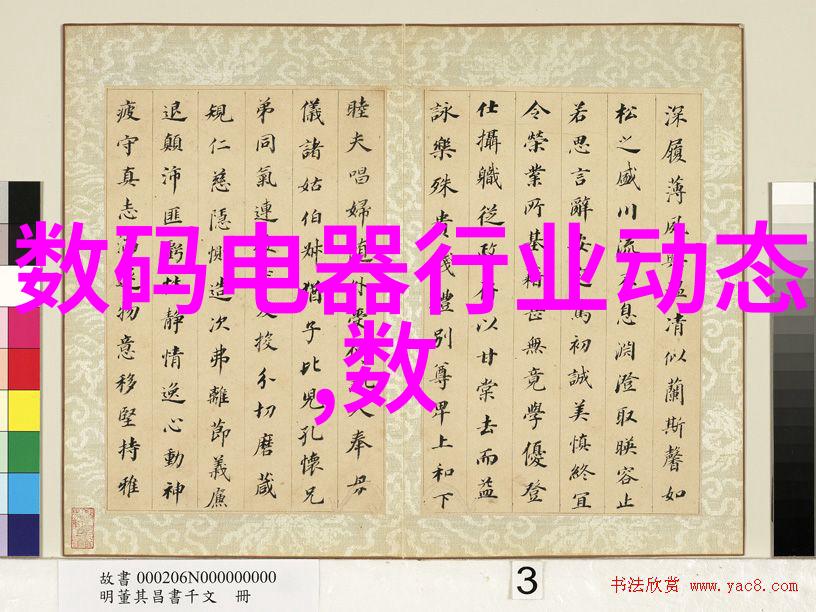 深履薄夙興温凊似蘭斯馨如
松之盛川流不息淵澄取暎容止
若思言辭安定篤初誠美慎終冝
令榮業所基籍甚無竟學優登
仕攝職從政存以甘棠去而益
詠樂殊貴賤禮別尊卑上和下
睦夫唱婦隨外受入奉母
儀諸姑伯叔猶子比兒孔懷兄
弟同氣連友投分切磨箴
規仁慈隱惻造次弗離節義廉
退顛沛匪虧性靜情逸心動神
疲守真志滿逐物意移堅持雅
数码电器行业动态
,数
故書 000206N000000000
明董其昌書千文 冊
3
书法欣赏 www.yac8.com